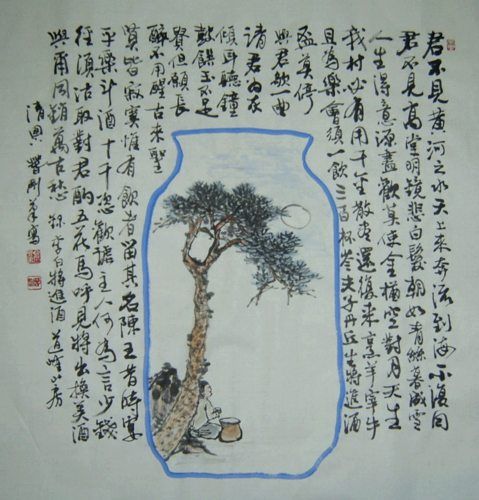 君不見黃河之水天上來奔流到海不復回
君不見高堂明鏡悲白髮朝如青絲暮成雪
人生得意須盡歡莫使金樽空對月天生
我材必有用千金散盡還復來烹羊宰牛
且為樂會須一飲三百杯岑夫子丹丘生將進酒
盃莫停
與君歌一曲
請君為我
傾耳聽鐘
鼓饌玉不足
貴但願長
醉不用醒古來聖
賢皆寂寞惟有飲者留其名陳王昔時宴
平樂斗酒十千恣歡謔主人何為言少錢
徑須沽取對君酌五花馬呼兒將出換美酒
與爾同銷萬古愁 錄李白將進酒